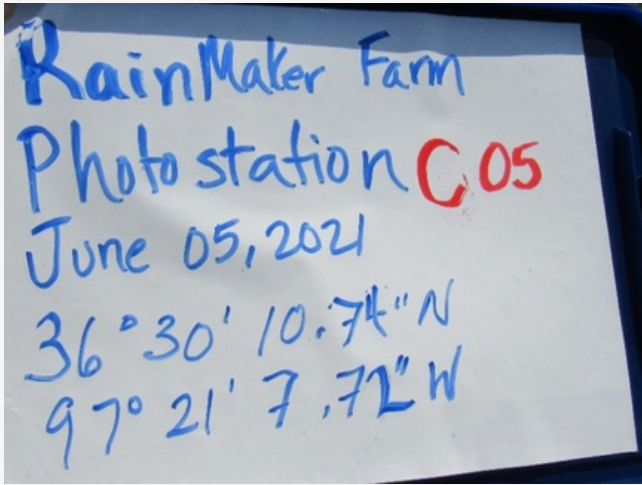 RainMaker Farm
Photo station C 05
June 05, 2021
36° 30' 10.74" N
97° 21' 7.72" W